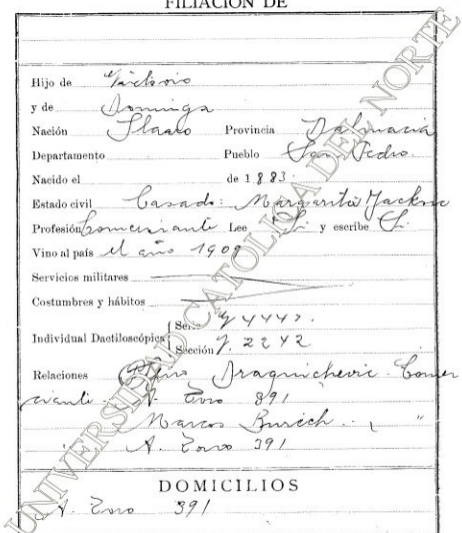 FILIACIÓN DE
Hijo de
y de Dominga
Nación Slavo Provincia Dalmacia
Departamento Pueblo San Pedro.
Nacido el de 1883.
Estado civil Casado: Margarita Jackson
Profesión Comerciante Lee Si y escribe Si.
Vino al país el año 1909
Servicios militares
Costumbres y hábitos
Individual Dactiloscópica Serie 4443.
Sección 2242
Relaciones Draguichevic. Comer
ciante. A. Toro 391
Marcos Burich. "
A. Toro 391
DOMICILIOS
A. Toro 391
UNIVERSIDAD CATOLICA DEL NORTE